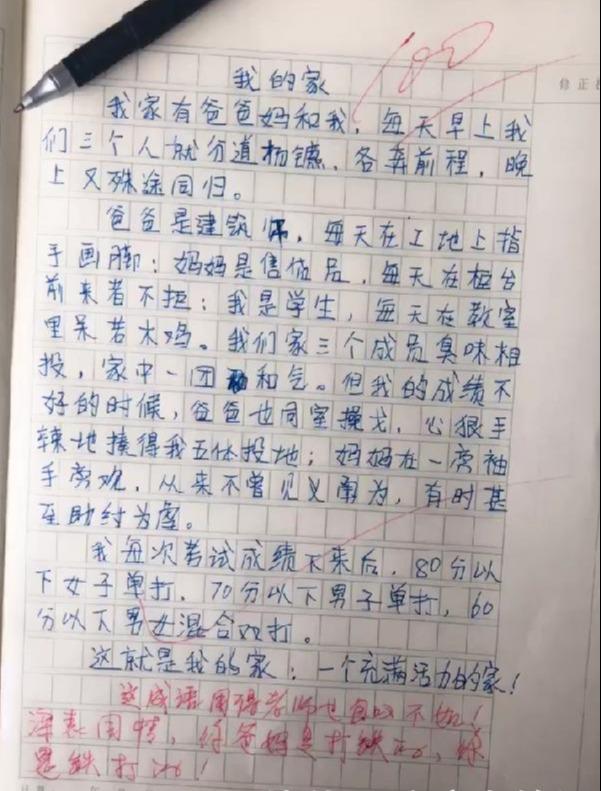 100
我的家
修正
我家有爸爸妈和我，每天早上我
们三个人就分道扬镳，各奔前程，晚
上又殊途同归。
爸爸是建筑师，每天在工地上指
手画脚；妈妈是售货员，每天在柜台
前来者不拒；我是学生，每天在教室
里呆若木鸡。我们家三个成员臭味相
投，家中一团和气。但我的成绩不
好的时候，爸爸也同室操戈，心狠手
辣地揍得我五体投地；妈妈在一旁袖
手旁观，从来不曾见义勇为，有时甚
至助纣为虐。
我每次考试成绩下来后，80分以
下女子单打，70分以下男子单打，60
分以下男女混合双打。
这就是我的家：一个充满活力的家！
这成语用得老师也自叹不如！
深表同情，你爸妈是打铁的，你
是铁打的！